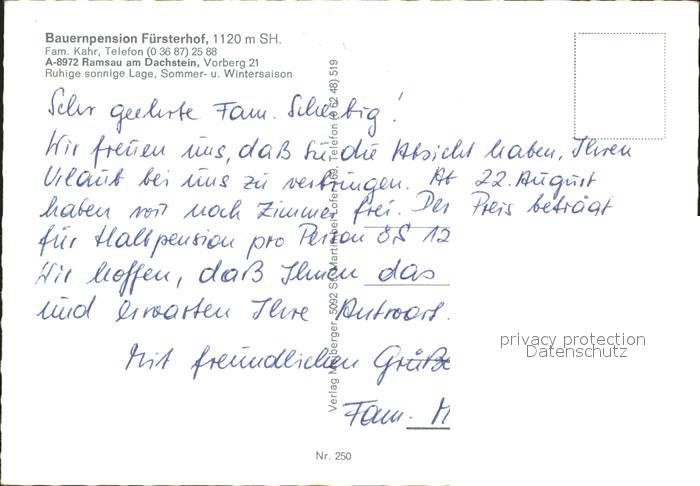 Bauernpension Fürsterhof, 1120 m SH.
Fam. Kahr, Telefon (0 36 87) 25 88
A-8972 Ramsau am Dachstein, Vorberg 21
Ruhige sonnige Lage, Sommer- u. Wintersaison
Sehr geehrte Fam. !
Wir freuen uns, daß Sie die Absicht haben, Ihren
Urlaub bei uns zu verbringen. Ab 22. August
haben wir noch Zimmer frei. Der Preis beträgt
für Halbpension pro Person ÖS 12
Wir hoffen, daß Ihnen das
und erwarten Ihre Antwort.
Mit freundlichen Grüße
Fam. M
Verlag 5092 St. Martin bei Lofer 169, Telefon (0 62 48) 519
Nr. 250
privacy protection
Datenschutz